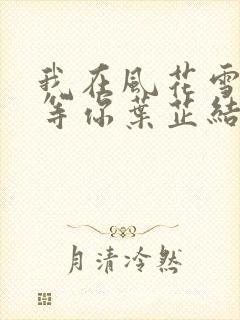 我在風花雪
等你葉芷結
月清冷然